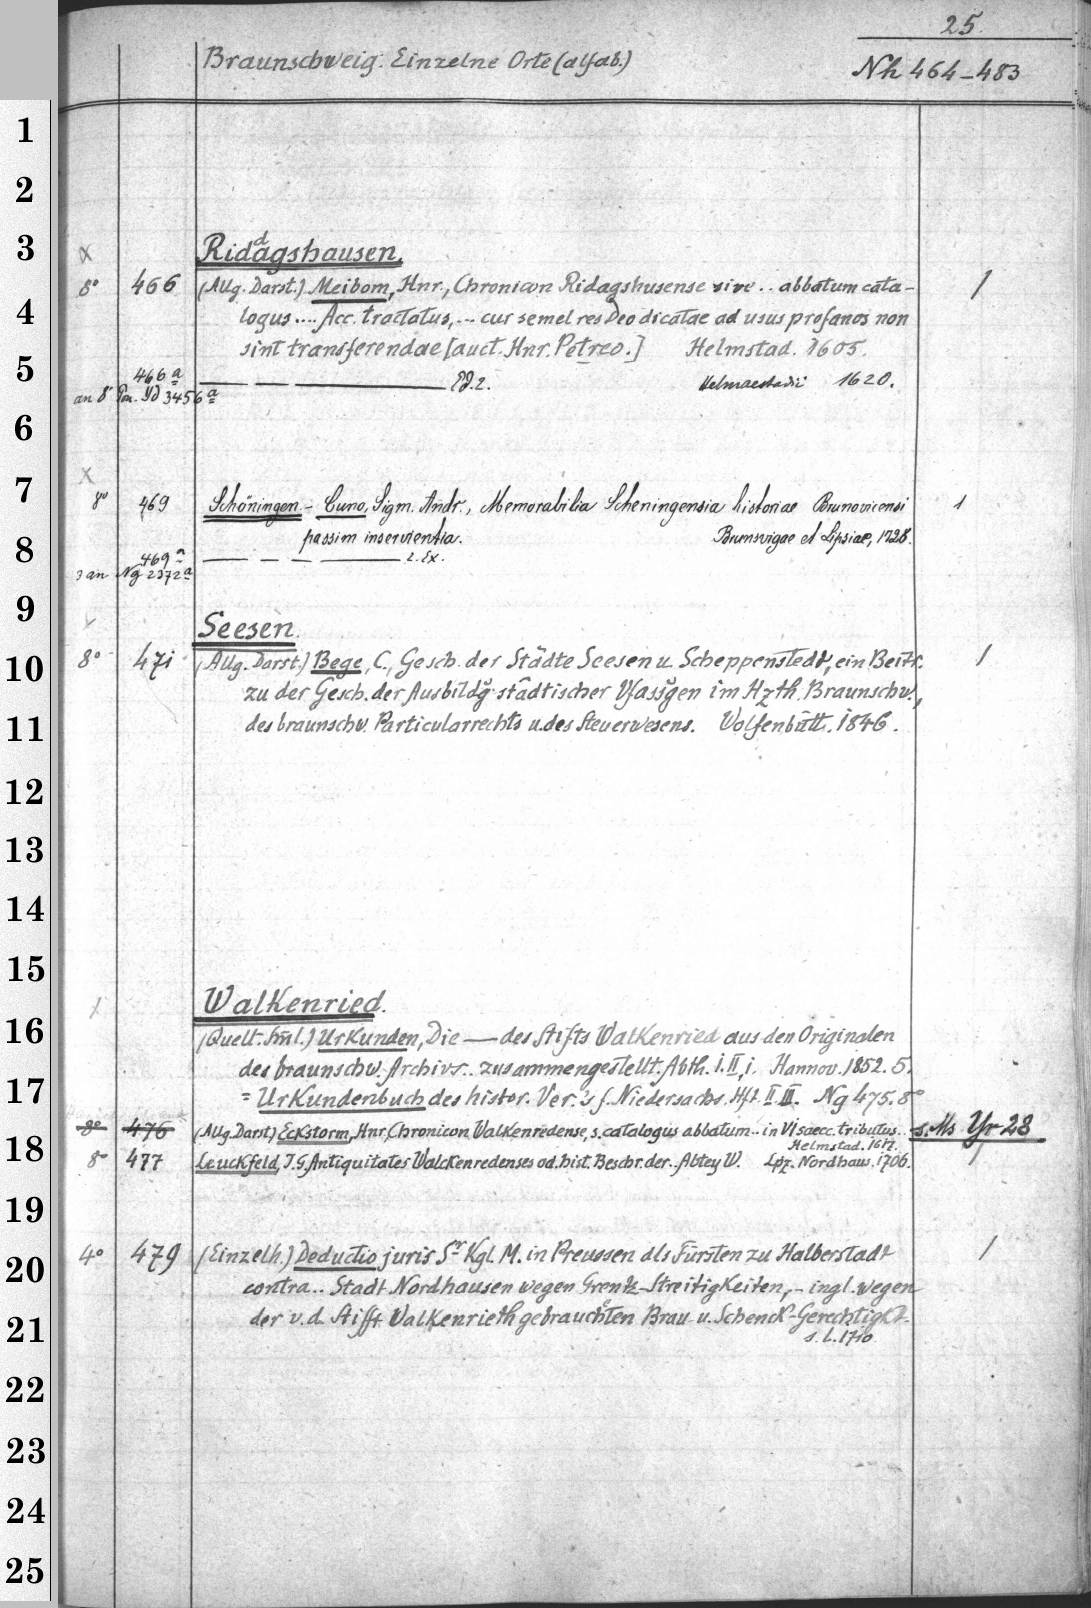 25.
Braunschweig. Einzelne Orte (alfab.)
Nh 464-483
1
2
3
x
Riddagshausen.
8° 466 (Allg. Darst.) Meibom, Hnr., Chronicon Ridagshusense sive .. abbatum cata- 1
4
logus .... Acc. tractatus, ... cur semel res Deo dicatae ad usus profanos non
sint transferendae [auct. Hnr. Petreo.] Helmstad. 1605.
5
466a Ed. 2. Helmaestadii 1620.
an 8° Yd 3456a
6
7
x
8° 469 Schöningen. - Cuno, Sigm. Andr., Memorabilia Scheningensia historiae Brunovicensi 1
passim inservientia. Brunsvigae et Lipsiae, 1728.
8
469a 2. Ex.
3 an Ng 2372a
9
Seesen.
10
8° 471 (Allg. Darst.) Bege, C., Gesch. der Städte Seesen u. Scheppenstedt, ein Beitr. 1
zu der Gesch. der Ausbildg städtischer Vfassgen im Hzth. Braunschw.,
11
des braunschw. Particularrechts u. des Steuerwesens. Wolfenbütt. 1846.
12
13
14
15
x
Walkenried.
16
(Quell. Sml.) Urkunden, Die — des Stifts Walkenried aus den Originalen
des braunschw. Archivs .. zusammengestellt. Abth. I. II, i. Hannov. 1852. 5.
17
= Urkundenbuch des histor. Ver.'s f. Niedersachs. Hft. II III. Ng 475. 8°
8° 476 (Allg. Darst) Eckstorm, Hnr, Chronicon Walkenredense, s. catalogus abbatum .. in VI saecc. tributus. s. Ms Yr 28
Helmstad. 1617.
18
8° 477 Leuckfeld, J. G, Antiquitates Walckenredenses od. hist. Beschr. der .. Abtey W. Lpz. Nordhaus. 1706. 1
19
20
4° 479 (Einzelh.) Deductio juris Sr Kgl. M. in Preussen als Fürsten zu Halberstadt 1
contra .. Stadt Nordhausen wegen Grentz-Streitigkeiten, - ingl. wegen
21
der v. d. Stifft Walkenrieth gebrauchten Brau- u. Schenck-Gerechtigkt.
s. l. 1710
22
23
24
25